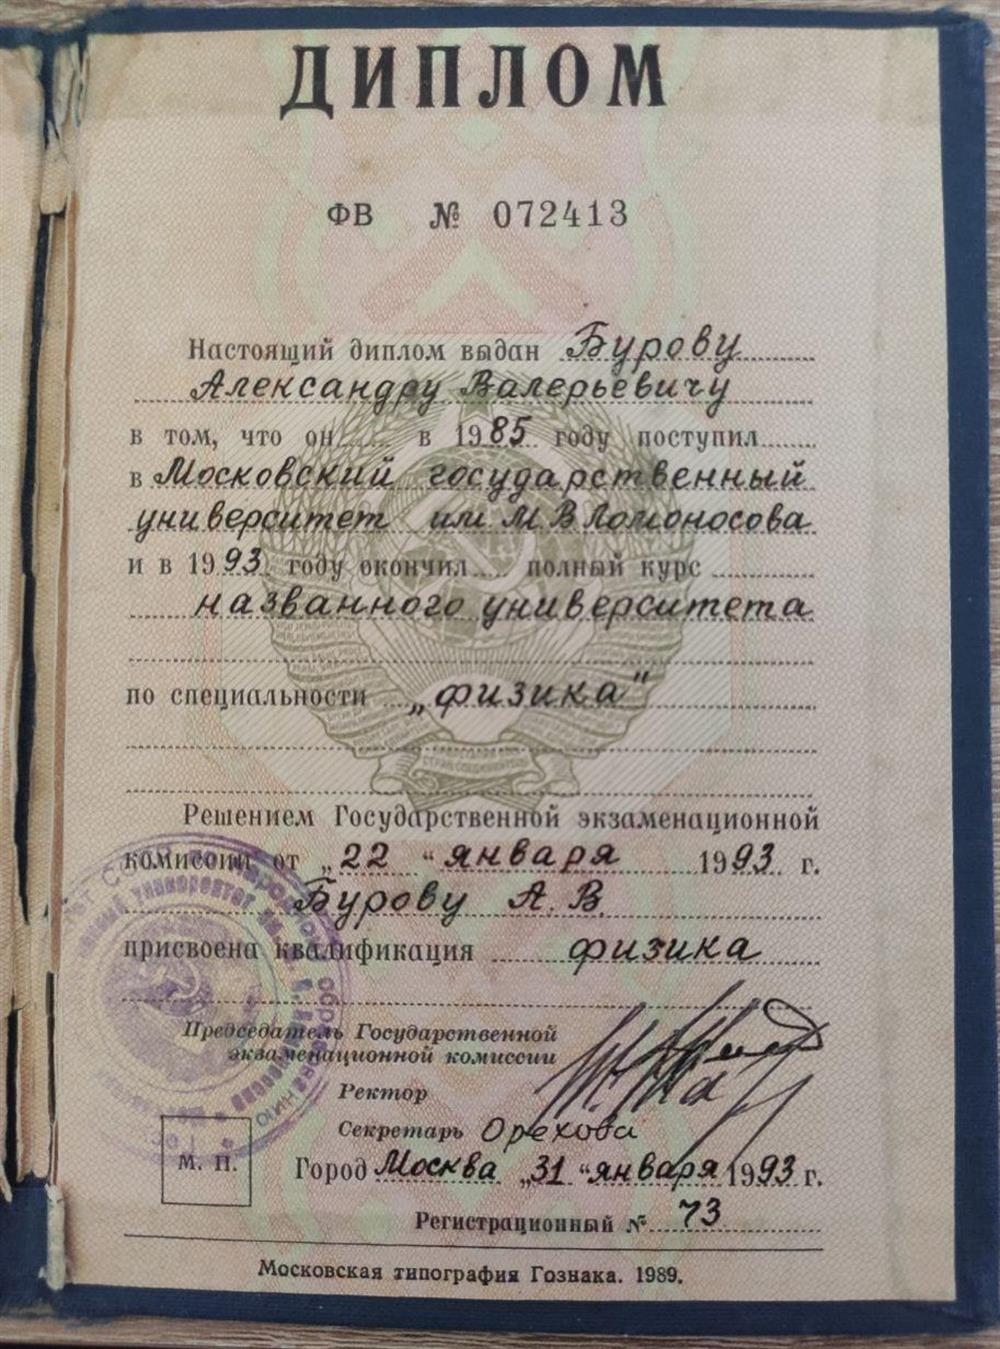 ДИПЛОМ
ФВ № 072413
Настоящий диплом выдан Бурову
Александру Валерьевичу
в том, что он в 1985 году поступил
в Московский государственный
университет им М В Ломоносова
и в 1993 году окончил полный курс
названного университета
по специальности „физика"
Решением Государственной экзаменационной
комиссии от „22 “ января 1993 г.
Бурову А. В.
присвоена квалификация физика
Председатель Государственной
экзаменационной комиссии
Ректор
Секретарь Орехова
М. П.
Город Москва „31 “ января 1993 г.
Регистрационный № 73
Московская типография Гознака. 1989.